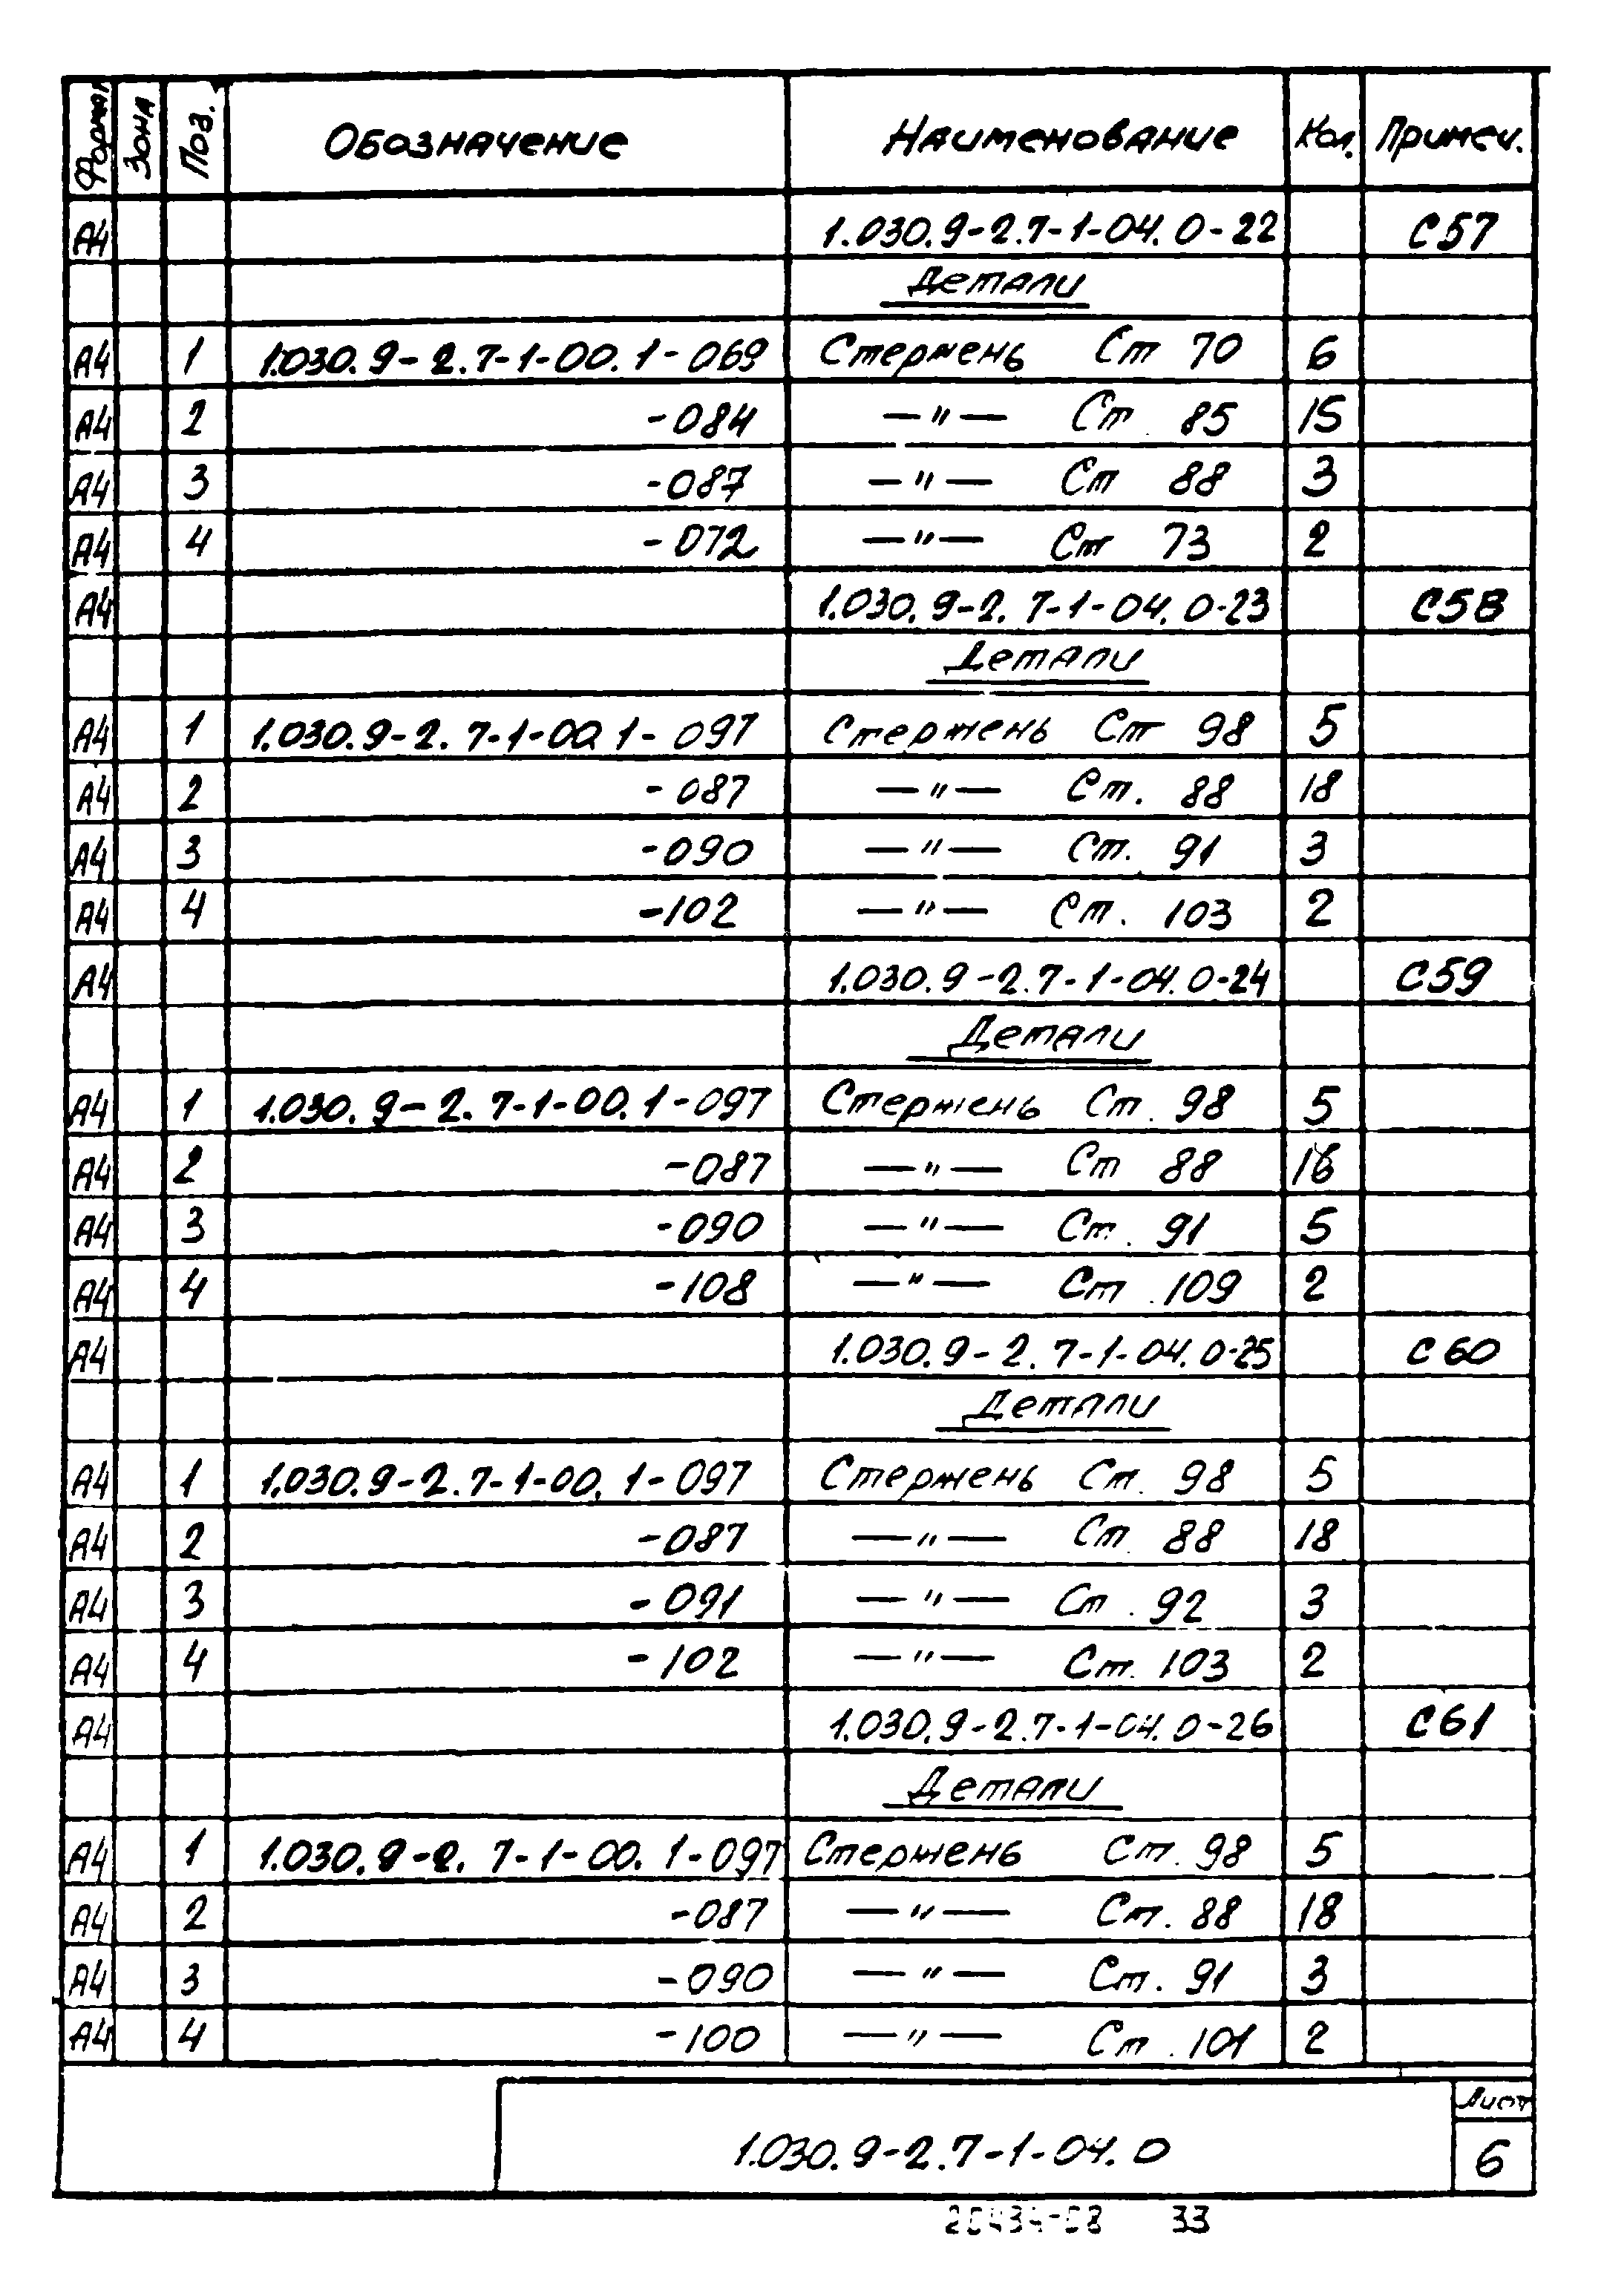 Формат Зона Поз. Обозначение Наименование Кол. Примеч.
А4 1.030.9-2.7-1-04.0-22 С57
Детали
А4 1 1.030.9-2.7-1-00.1-069 Стержень Ст 70 6
А4 2 -084 —"— Ст 85 15
А4 3 -087 —"— Ст 88 3
А4 4 -072 —"— Ст 73 2
А4 1.030.9-2.7-1-04.0-23 С58
Детали
А4 1 1.030.9-2.7-1-00.1-097 Стержень Ст 98 5
А4 2 -087 —"— Ст. 88 18
А4 3 -090 —"— Ст. 91 3
А4 4 -102 —"— Ст. 103 2
А4 1.030.9-2.7-1-04.0-24 С59
Детали
А4 1 1.030.9-2.7-1-00.1-097 Стержень Ст. 98 5
А4 2 -087 —"— Ст 88 16
А4 3 -090 —"— Ст. 91 5
А4 4 -108 —"— Ст. 109 2
А4 1.030.9-2.7-1-04.0-25 С60
Детали
А4 1 1.030.9-2.7-1-00.1-097 Стержень Ст. 98 5
А4 2 -087 —"— Ст 88 18
А4 3 -091 —"— Ст. 92 3
А4 4 -102 —"— Ст. 103 2
А4 1.030.9-2.7-1-04.0-26 С61
Детали
А4 1 1.030.9-2.7-1-00.1-097 Стержень Ст. 98 5
А4 2 -087 —"— Ст. 88 18
А4 3 -090 —"— Ст. 91 3
А4 4 -100 —"— Ст. 101 2
Лист
1.030.9-2.7-1-04.0 6
20434-08 33